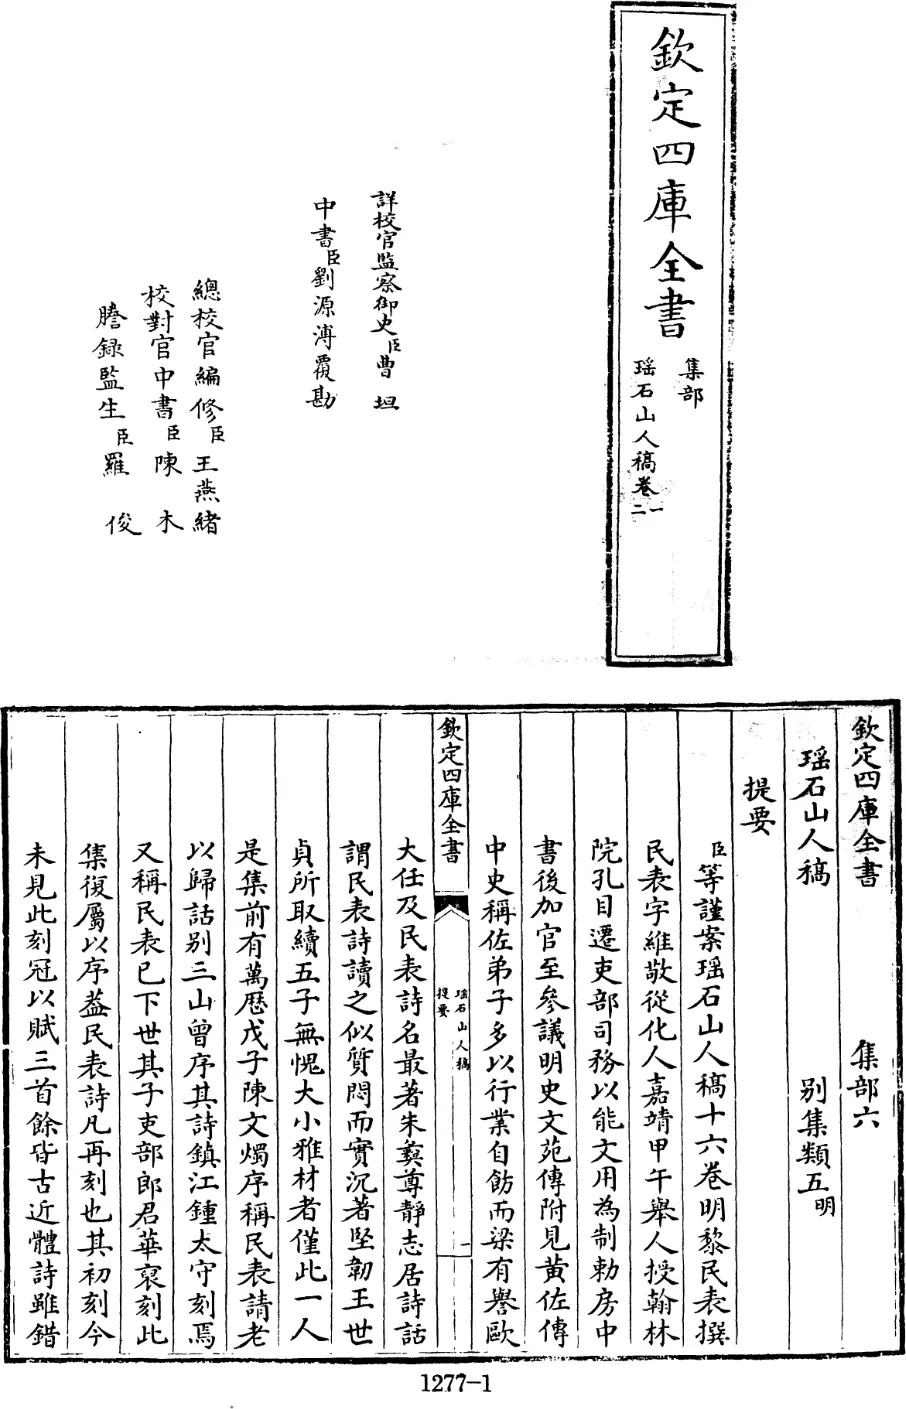 欽定四庫全書
集部
瑶石山人稿卷一二
詳校官監察御史臣曹坦
中書臣劉源溥覆勘
總校官編修臣王燕緒
校對官中書臣陳木
謄錄監生臣羅俊
欽定四庫全書 集部六
瑶石山人稿 别集類五明
提要
臣等謹案瑶石山人稿十六卷明黎民表撰
民表字維敬從化人嘉靖甲午舉人授翰林
院孔目遷吏部司務以能文用為制勅房中
書後加官至參議明史文苑傳附見黄佐傳
中史稱佐弟子多以行業自飭而梁有譽歐
欽定四庫全書
瑶石山人稿
提要
一
大任及民表詩名最著朱彝尊靜志居詩話
謂民表詩讀之似質悶而實沉著堅韌王世
貞所取續五子無愧大小雅材者僅此一人
是集前有萬厯戊子陳文燭序稱民表請老
以歸話别三山曾序其詩鎮江鍾太守刻焉
又稱民表已下世其子吏部郎君華裒刻此
集復屬以序葢民表詩凡再刻也其初刻今
未見此刻冠以賦三首餘皆古近體詩雖錯
1277-1